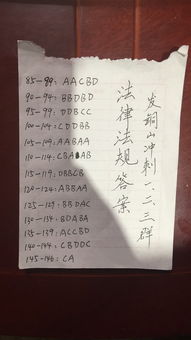 85-89: AACBD
90-94: BBDBD
95-99: DDBCC
100-104: CDDBB
105-109: AABAA
110-114: CBAAB
115-119: DBBCB
120-124: ABBAA
125-129: BBDAC
130-134: BDABA
135-139: ACCBD
140-144: CBDDC
145-146: CA
法律法规答案
发铜山冲刺一、二、三群